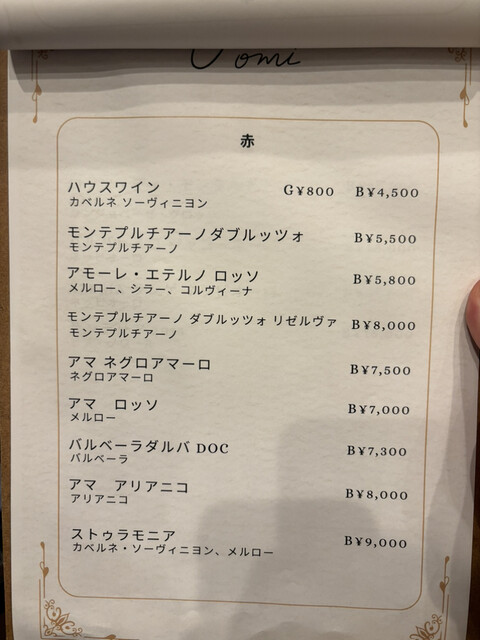 赤
ハウスワイン G¥800 B¥4,500
カベルネ ソーヴィニヨン
モンテプルチアーノダブルッツォ B¥5,500
モンテプルチアーノ
アモーレ・エテルノ ロッソ B¥5,800
メルロー、シラー、コルヴィーナ
モンテプルチアーノ ダブルッツォ リゼルヴァ B¥8,000
モンテプルチアーノ
アマ ネグロアマーロ B¥7,500
ネグロアマーロ
アマ　ロッソ B¥7,000
メルロー
バルベーラダルバ DOC B¥7,300
バルベーラ
アマ　アリアニコ B¥8,000
アリアニコ
ストゥラモニア B¥9,000
カベルネ・ソーヴィニヨン、メルロー